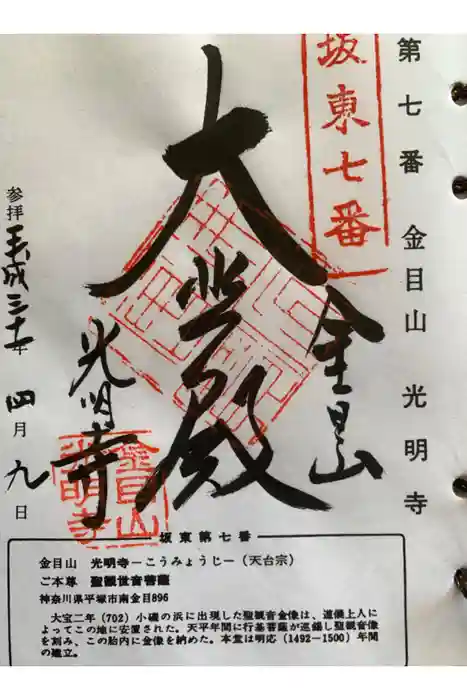 第七番 金目山 光明寺
坂東七番
金目山
大悲殿
光明寺
金目山
光明寺
参拝 平成三十一年 四月九日
坂東第七番
金目山 光明寺－こうみょうじ－(天台宗)
ご本尊 聖観世音菩薩
神奈川県平塚市南金目896
大宝二年(702)小磯の浜に出現した聖観音金像は、道儀上人に
よってこの地に安置された。天平年間に行基菩薩が巡錫し聖観音像
を刻み、この胎内に金像を納めた。本堂は明応(1492－1500)年間
の建立。